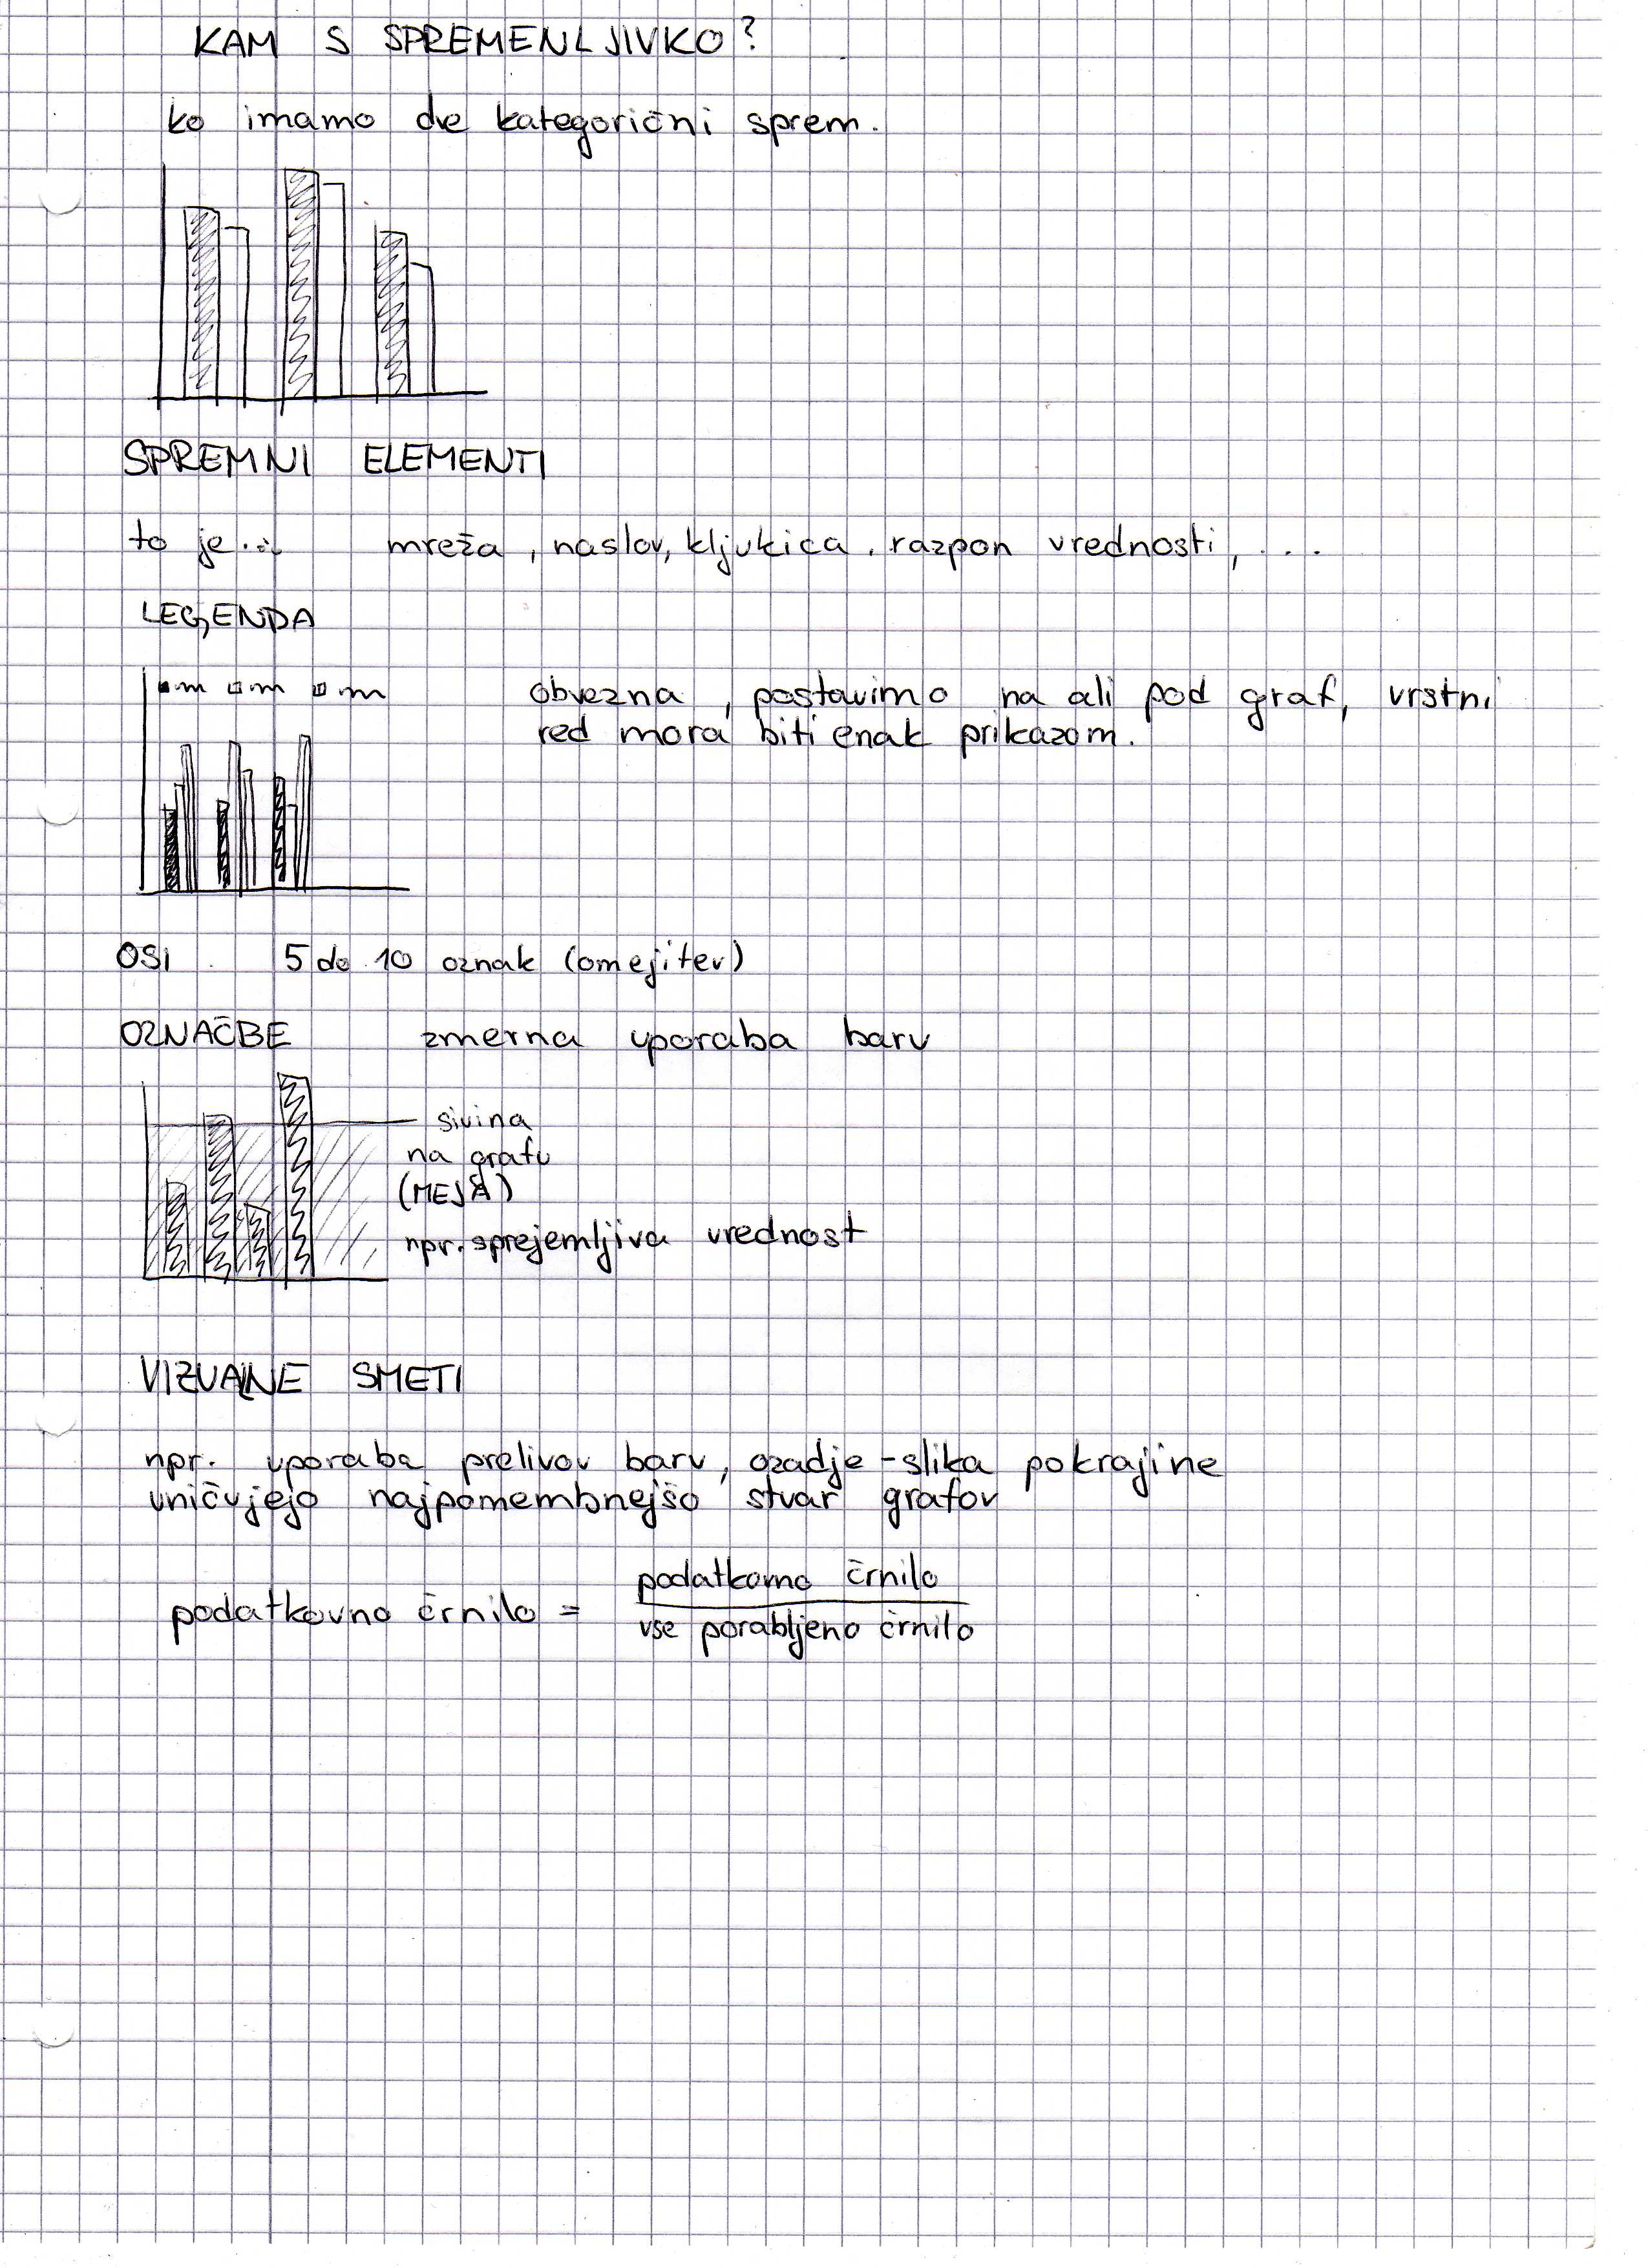 KAM S SPREMENLJIVKO?
ko imamo dve kategorični sprem.
SPREMNI ELEMENTI
to je... mreža, naslov, kljukica, razpon vrednosti, ...
LEGENDA
obvezna, postavimo na ali pod graf, vrstni
red mora biti enak prikazom.
OSI 5 do 10 oznak (omejitev)
OZNAČBE zmerna uporaba barv
sivina
na grafu
(MEJA)
npr. sprejemljiva vrednost
VIZUALNE SMETI
npr. uporaba prelivov barv, ozadje - slika pokrajine
uničujejo najpomembnejšo stvar grafov
podatkovno črnilo = podatkovno črnilo
vse porabljeno črnilo